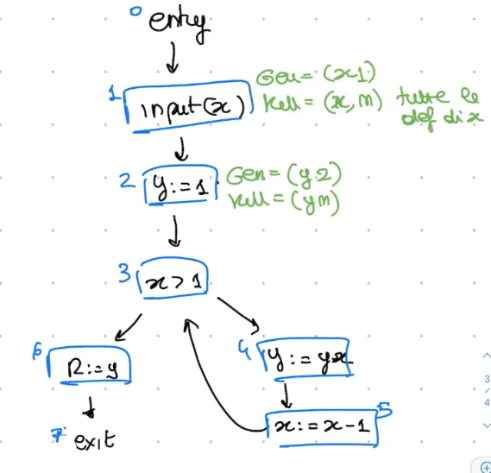 0 entry
1 input(x) Gen = (x1) Kill = (x,n) tutte le def di x
2 y:=1 Gen = (y.2) Kill = (yn)
3 x>1
6 R:=y
4 y:=yx
5 x:=x-1
7 exit
3
4